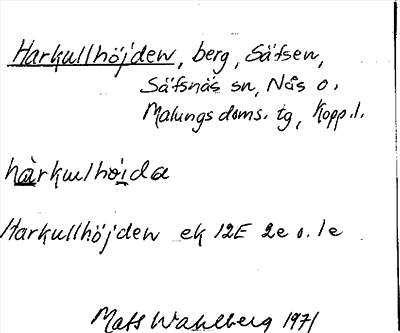 Harkullhöjden, berg, Säfsen,
Säfsnäs sn, Nås o.
Malungs doms. tg, Kopp. l.
hàrkulhöida
Harkullhöjden ek 12E 2e o. 1e
Mats Wahlberg 1971